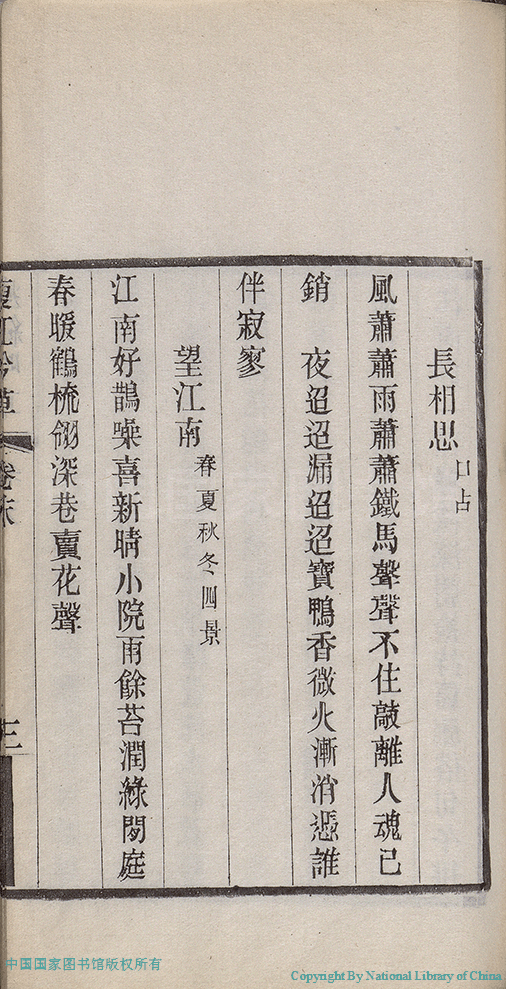 長相思 口占
風蕭蕭雨蕭蕭鐵馬聲聲不住敲離人魂已
銷　夜迢迢漏迢迢寶鴨香微火漸消憑誰
伴寂寥
望江南 春夏秋冬四景
江南好鵲噪喜新晴小院雨餘苔潤綠閒庭
春暖鶴梳翎深巷賣花聲
江吟草 卷末 三
中国国家图书馆版权所有
Copyright By National Library of China